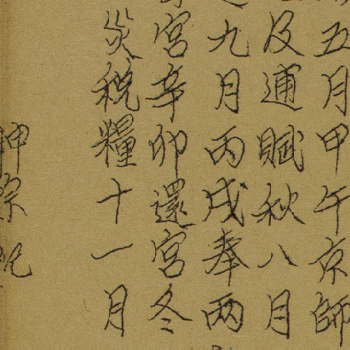 五月甲午京師
及逋賦秋八月
九月丙戌奉兩
宮辛卯還宮冬
災稅糧十一月